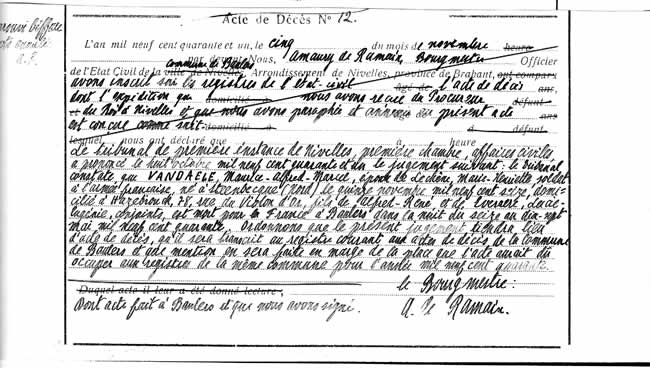 Acte de Décès N° 12.
approuvé biffure
a. R.
L'an mil neuf cent quarante et un, le cinq du mois de novembre heure
par devant Nous, Amaury de Ramaix, Bourgmestre Officier
commune de Baulers
de l'Etat Civil de la ville de Nivelles, Arrondissement de Nivelles, province de Brabant, ont comparu
avons inscrit sur les registres de l'état-civil âgé de l'acte de décès ans,
dont l'expédition que domicilié à nous avons reçue du Procureur défunt
et du Roi à Nivelles et que nous avons paraphée et annexée au présent acte ans
est conçue comme suit : domicilié à défunt
lequel, nous ont déclaré que à heure
Le tribunal de première instance de Nivelles, première chambre, affaires civiles
a prononcé le huit octobre mil neuf cent quarante et un le jugement suivant : le tribunal
constate que VANDAELE, Maurice-Alfred-Marcel, époux de Marie-Henriette soldat
à l'armée française, né à Steenbecque (Nord) le quinze novembre mil neuf cent seize, domi-
cilié à Hazebrouck, 78, rue du Violon d'Or, fils de Alfred-René, et de Verriere, Lucie-
Eugénie, conjoints, est mort pour la France à Baulers dans la nuit du seize au dix-sept
mai mil neuf cent quarante. Ordonnons que le présent jugement tiendra lieu
d'acte de décès, qu'il sera transcrit au registre courant aux actes de décès de la commune
de Baulers et que mention en sera faite en marge de la place que l'acte aurait dû
occuper aux registres de la même commune pour l'année mil neuf cent quarante.
Duquel acte il leur a été donné lecture, le Bourgmestre :
Dont acte fait à Baulers et que nous avons signé. A. de Ramaix.